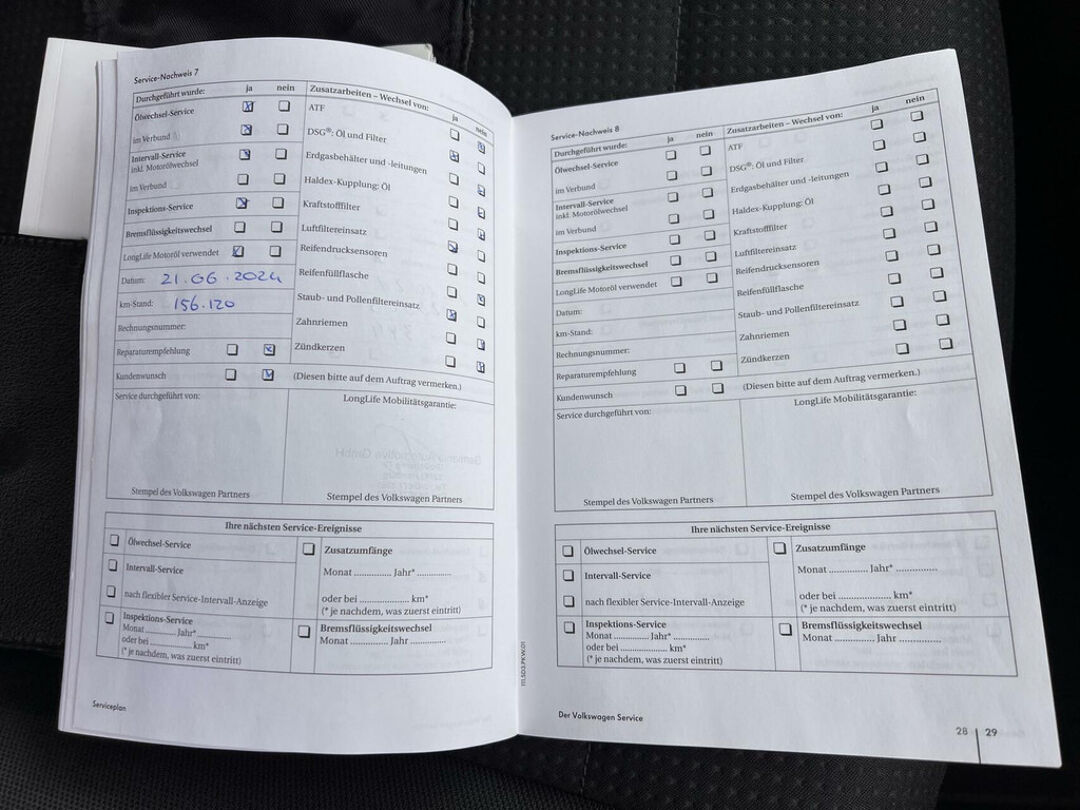 Service-Nachweis 7
Durchgeführt wurde: ja nein
Ölwechsel-Service
im Verbund
Intervall-Service
inkl. Motorölwechsel
im Verbund
Inspektions-Service
Bremsflüssigkeitswechsel
LongLife Motoröl verwendet
Datum: 21.06.2024
km-Stand: 156.120
Rechnungsnummer:
Reparaturempfehlung
Kundenwunsch
Zusatzarbeiten – Wechsel von:
ja nein
ATF
DSG®: Öl und Filter
Erdgasbehälter und -leitungen
Haldex-Kupplung: Öl
Kraftstofffilter
Luftfiltereinsatz
Reifendrucksensoren
Reifenfüllflasche
Staub- und Pollenfiltereinsatz
Zahnriemen
Zündkerzen
(Diesen bitte auf dem Auftrag vermerken.)
Service durchgeführt von:
Stempel des Volkswagen Partners
LongLife Mobilitätsgarantie:
Stempel des Volkswagen Partners
Ihre nächsten Service-Ereignisse
Ölwechsel-Service
Intervall-Service
nach flexibler Service-Intervall-Anzeige
Inspektions-Service
Monat .......... Jahr* ..........
oder bei .................... km*
(* je nachdem, was zuerst eintritt)
Zusatzumfänge
Monat .............. Jahr* .............
oder bei .................... km*
(* je nachdem, was zuerst eintritt)
Bremsflüssigkeitswechsel
Monat .............. Jahr ..............
Serviceplan
Service-Nachweis 8
Durchgeführt wurde: ja nein
Ölwechsel-Service
im Verbund
Intervall-Service
inkl. Motorölwechsel
im Verbund
Inspektions-Service
Bremsflüssigkeitswechsel
LongLife Motoröl verwendet
Datum:
km-Stand:
Rechnungsnummer:
Reparaturempfehlung
Kundenwunsch
Zusatzarbeiten – Wechsel von:
ja nein
ATF
DSG®: Öl und Filter
Erdgasbehälter und -leitungen
Haldex-Kupplung: Öl
Kraftstofffilter
Luftfiltereinsatz
Reifendrucksensoren
Reifenfüllflasche
Staub- und Pollenfiltereinsatz
Zahnriemen
Zündkerzen
(Diesen bitte auf dem Auftrag vermerken.)
Service durchgeführt von:
Stempel des Volkswagen Partners
LongLife Mobilitätsgarantie:
Stempel des Volkswagen Partners
Ihre nächsten Service-Ereignisse
Ölwechsel-Service
Intervall-Service
nach flexibler Service-Intervall-Anzeige
Inspektions-Service
Monat .......... Jahr* ..........
oder bei .................... km*
(* je nachdem, was zuerst eintritt)
Zusatzumfänge
Monat .............. Jahr* ..............
oder bei .................... km*
(* je nachdem, was zuerst eintritt)
Bremsflüssigkeitswechsel
Monat .............. Jahr ..............
Der Volkswagen Service
28 | 29